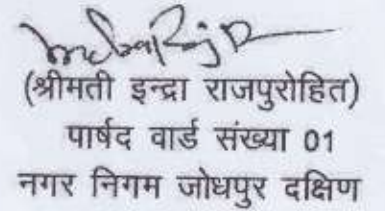 (श्रीमती इन्द्रा राजपुरोहित)
पार्षद वार्ड संख्या 01
नगर निगम जोधपुर दक्षिण